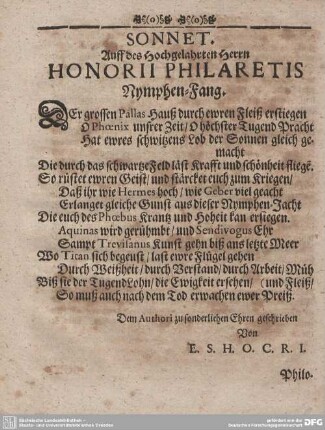 SONNET.
Auff des Hochgelahrten Herrn
HONORII PHILARETIS
Nymphen-Fang.
DEr grossen Pallas Hauß durch ewren Fleiß erstiegen
O Phœnix unsrer Zeit / O höchster Tugend Pracht
Hat ewres schwitzens Lob der Sonnen gleich ge-
macht
Die durch das schwartze Feld läst Krafft und schönheit fliegē.
So rüstet ewren Geist / und stärcket euch zum Kriegen /
Daß ihr wie Hermes hoch / wie Geber viel geacht
Erlanget gleiche Gunst aus dieser Nymphen-Jacht
Die euch des Phœbus Krantz und Hoheit kan ersiegen.
Aquinas wird gerühmbt / und Sendivogus Ehr
Sampt Trevisanus Kunst gehn biß ans letzte Meer
Wo Titan sich begeust / last ewre Flügel gehen
Durch Weißheit / durch Verstand / durch Arbeit / Müh
Biß sie der Tugend Lohn / die Ewigkeit ersehen / (und Fleiß /
So muß auch nach dem Tod erwachen ewer Preiß.
Dem Authori zu sonderlichen Ehren geschrieben
Von
E. S. H. O. C. R. I.
Philo-